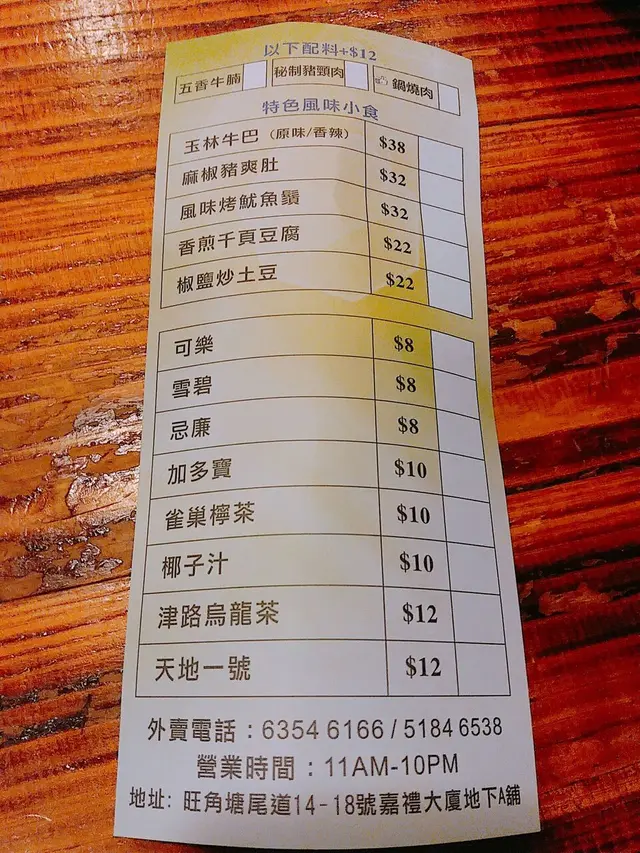 以下配料+$12
五香牛腩 秘制豬頸肉 鍋燒肉
特色風味小食
玉林牛巴（原味/香辣） $38
麻椒豬爽肚 $32
風味烤魷魚鬚 $32
香煎千頁豆腐 $22
椒鹽炒土豆 $22
可樂 $8
雪碧 $8
忌廉 $8
加多寶 $10
雀巢檸茶 $10
椰子汁 $10
津路烏龍茶 $12
天地一號 $12
外賣電話：6354 6166 / 5184 6538
營業時間：11AM-10PM
地址: 旺角塘尾道14-18號嘉禮大廈地下A舖